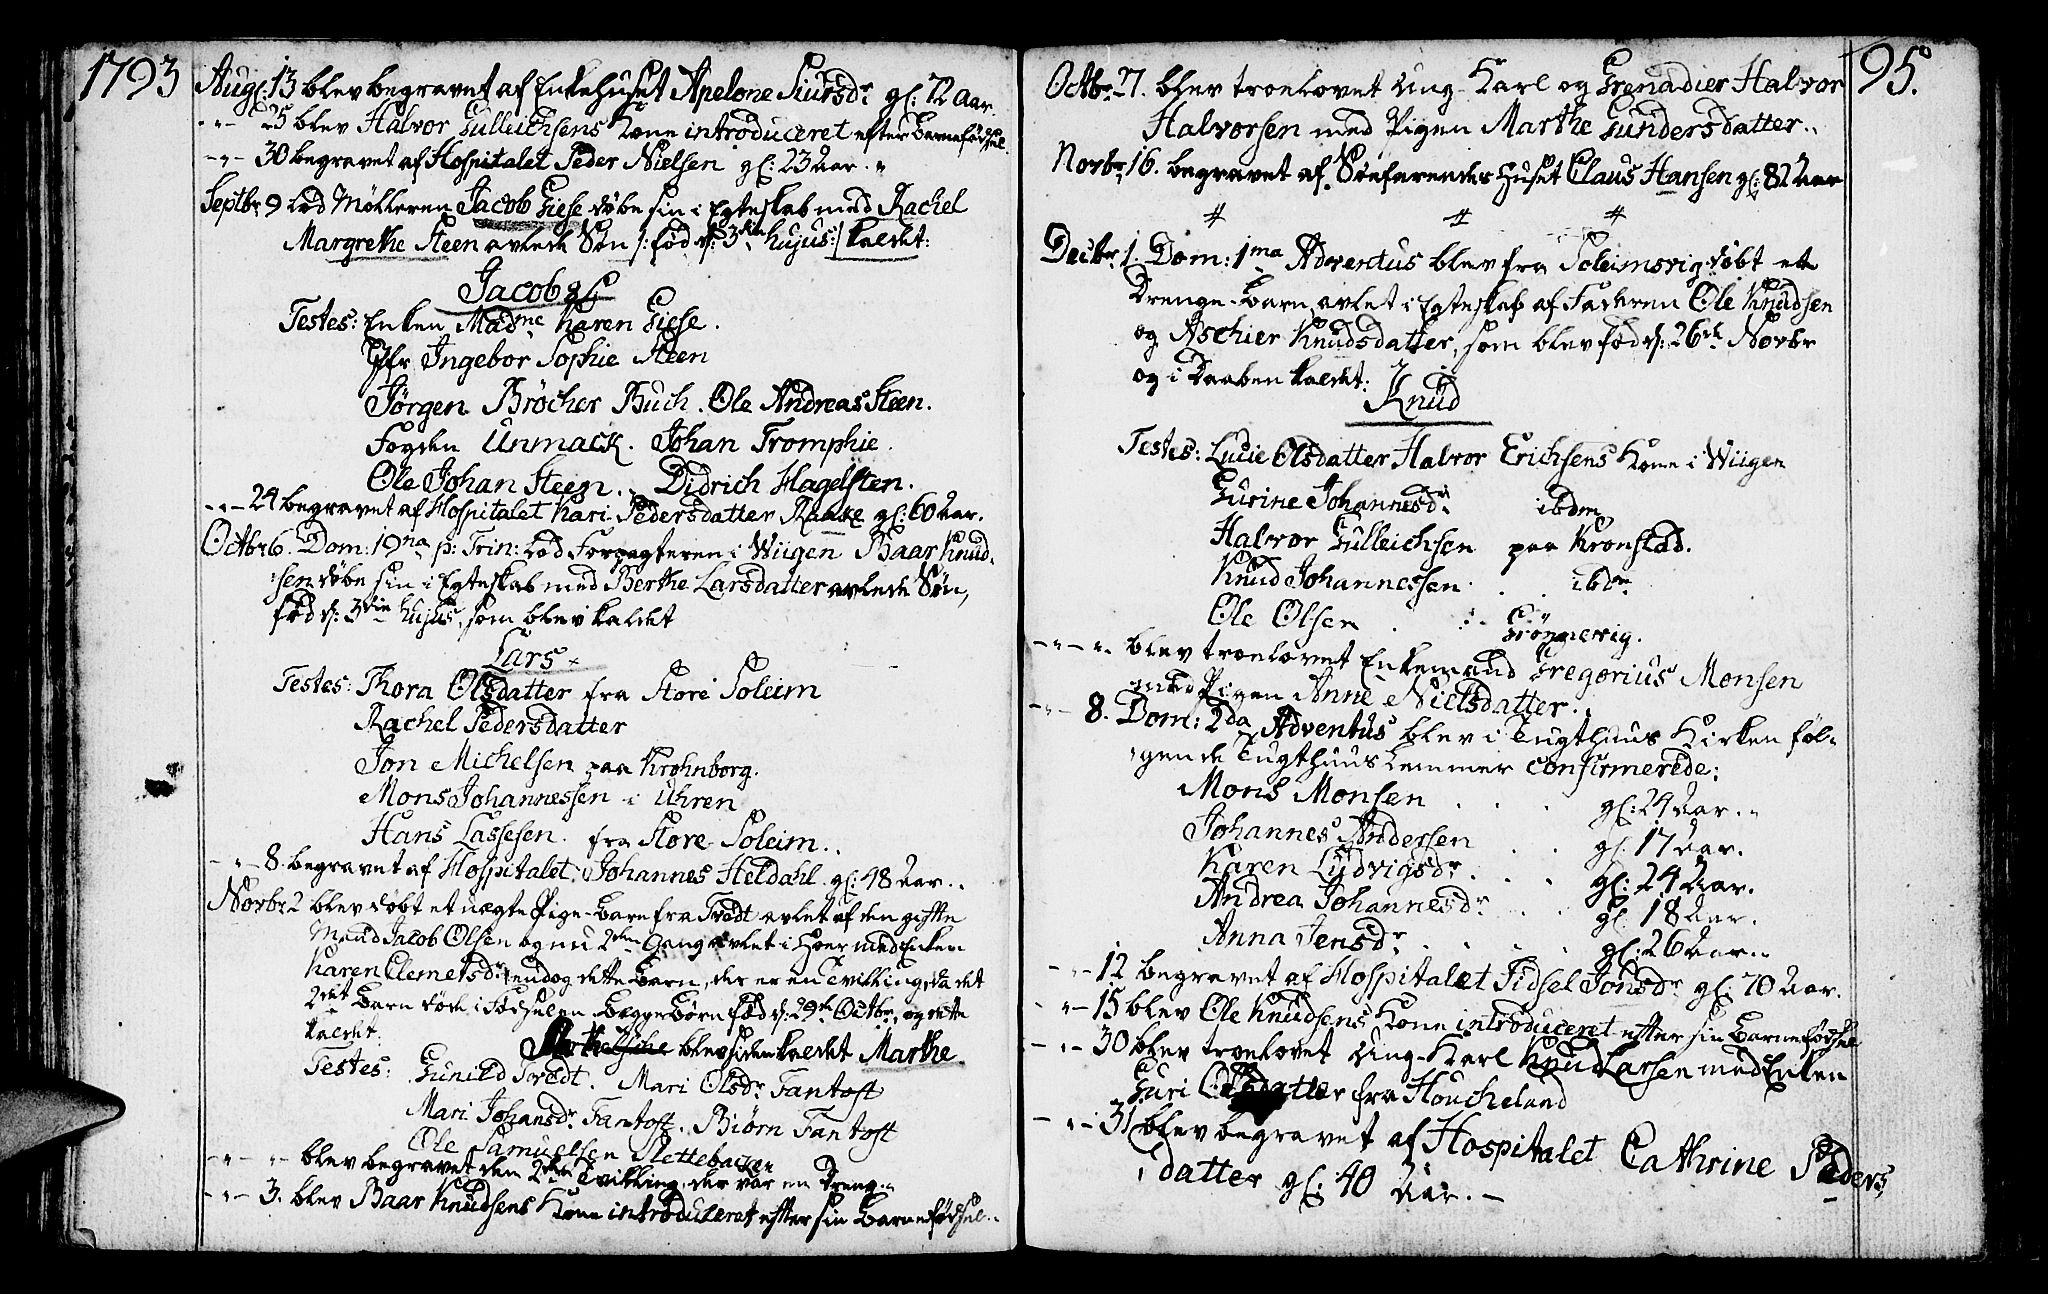 1793
Aug: 13 blev begravet af Enkehuset Apelone Siursdr gl: 72 Aar.
-"- 25 blev Halvor Gulleichsens Kone introduceret efter Barnefødsel.
-"- 30 begravet af Hospitalet Peder Nielsen gl: 23 Aar."
Septbr 9 lod Mølleren Jacob Giese døbe sin i Egteskab med Rachel
Margrethe Steen avlede Søn /: fød d: 3die hujus:/ kaldet:
Jacob
Testes: Enken Madme Karen Giese.
Jfr Ingebor Sophie Steen
Jørgen Brøcher Buch. Ole Andreas Steen.
Fogden Unmack. Johan Tromphie.
Ole Johan Steen. Didrich Hagelsten.
-"- 24 begravet af Hospitalet Kari Pedersdatter Raake gl: 60 Aar.
Octbr 6. Dom: 19na p: Trin: lod Forpagteren i Wiigen Baar Knud-
:sen døbe sin i Egteskab med Berthe Larsdatter avlede Søn,
fød d: 3die hujus, som blev kaldet
Lars
Testes: Thora Olsdatter fra Store Soleim
Rachel Pedersdatter
Jon Michelsen paa Krohnborg.
Mons Johannessen i Uhren
Hans Lassesen. fra Store Soleim..
-"- 8. begravet af Hospitalet: Johannes Heldahl gl: 48 Aar..
Novbr 2 blev døbt et uægte Pige-Barn fra Tvedt avlet af den gifte
Mand Jacob Olsen og nu 2den Gang avlet i Hoer med Enken
Karen Clemetsdr, endog dette Barn, der er en Tvilling, da det
2det Barn døde i Fødselen Begge Børn fød d: 29de Octbr, og dette
kaldet:
blev siden kaldet Marthe
Testes: Gunild Tvedt. Mari Olsdr Fantoft
Mari Johansdr Fantoft. Biørn Fantoft
Ole Samuelsen Slettebacken
-"- "- blev begravet den 2den Tvilling, der var en Dreng."
-"- 3. blev Baar Knudsens Kone introduceret efter sin Barnefødsel..
95.
Octbr 27. blev troelovet Ung-Karl og Grenadier Halvor
Halvorsen med Pigen Marthe Gundersdatter..
Novbr 16. begravet af Søefarendes Huset Claus Hansen gl: 82 Aar
# # #
Decbr 1. Dom: 1ma Adventus blev fra Soleimsvig døbt ett
Drenge-Barn avlet i Egteskab af Faderen Ole Knudsen
og Aschier Knudsdatter, som blev fød d: 26de Novbr
og i Daaben kaldet:
Knud
Testes: Lucie Olsdatter Halvor Erichsens Kone i Wiigen
Gurine Johannesdr ibdm
Halvor Gulleichsen paa Kronstad.
Knud Johannessen . . ibdm
Ole Olsen . :. Grønnevig.
-"-". blev troelovet Enkemand Gregorius Monsen
med Pigen Anne Nielsdatter..
-"- 8. Dom: 2da Adventus blev i Tugthuus Kirken føl-
:gende Tugthuus Lemmer confirmerede:
Mons Monsen . . . gl: 24 Aar."
Johannes Andersen . . gl. 17 Aar.
Karen Ludvigsdr . . . gl: 24 Aar.
Andrea Johannesdr . . gl: 18 Aar.
Anna Jensdr . . . . gl: 26 Aar..
-"- 12 begravet af Hospitalet Sidsel Jonsdr gl: 70 Aar.
-"- 15 blev Ole Knudsens Kone introduceret efter sin Barnefødsel
-"- 30 blev troelovet Ung-Karl Knud Larsen med Enken
Guri Olsdatter fra Houcheland
-"- 31 blev begravet af Hospitalet Cathrine Peders
:datter gl: 40 Aar. -